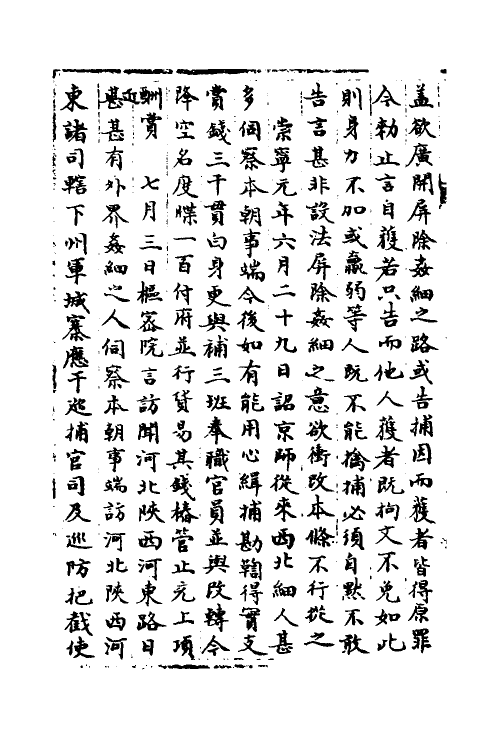 盖欲廣開屏除姦細之路或告捕因而獲者皆得原罪
今勑止言自獲若只告而他人獲者既拘文不免如此
則身力不加或羸弱等人既不能擒捕必須自默不敢
告言甚非設法屏除姦細之意欲衝改本條不行從之
崇寧元年六月二十九日詔京師從來西北細人甚
多伺察本朝事端今後如有能用心緝捕勘鞫得實支
賞錢三千貫白身更與補三班奉職官員並與改轉令
降空名度牒一百付府並行貨易其錢樁管止充上項
酬賞 七月三日樞密院言訪聞河北陝西河東路日
近甚有外界姦細之人伺察本朝事端訪河北陝西河
東諸司轄下州軍城寨應干廵捕官司及巡防把截使